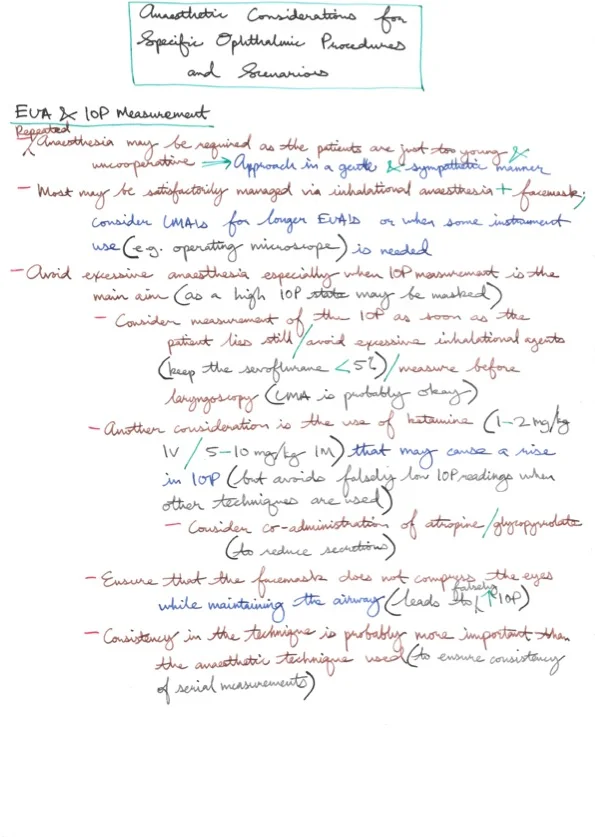 Anaesthetic Considerations for
Specific Ophthalmic Procedures
and Scenarios
EUA & IOP Measurement
Repeated
- Anaesthesia may be required as the patients are just too young &
uncooperative → Approach in a gentle & sympathetic manner
- Most may be satisfactorily managed via inhalational anaesthesia + facemask;
consider LMA's for longer EUA's or when some instrument
use (e.g. operating microscope) is needed
- Avoid excessive anaesthesia especially when IOP measurement is the
main aim (as a high IOP state may be masked)
- Consider measurement of the IOP as soon as the
patient lies still / avoid excessive inhalational agents
(keep the sevoflurane < 5%) / measure before
laryngoscopy (LMA is probably okay)
- Another consideration is the use of ketamine (1-2 mg/kg
IV / 5-10 mg/kg IM) that may cause a rise
in IOP (but avoids falsely low IOP readings when
other techniques are used)
- Consider co-administration of atropine/glycopyrrolate
(to reduce secretions)
- Ensure that the facemask does not compress the eyes
falsely
while maintaining the airway (leads to ↑ IOP)
- Consistency in the technique is probably more important than
the anaesthetic technique used (to ensure consistency
of serial measurements)